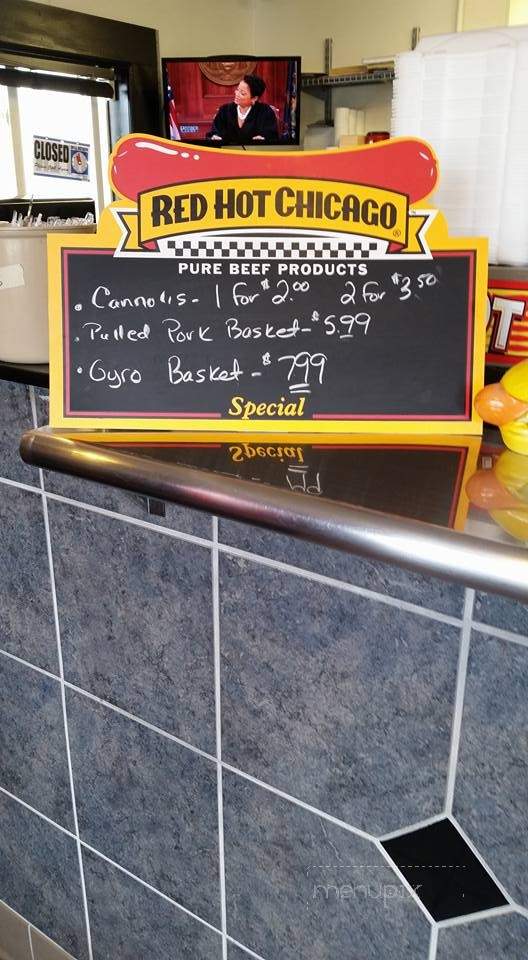 CLOSED
RED HOT CHICAGO®
PURE BEEF PRODUCTS
• Cannolis - 1 for $2.00 2 for $3.50
• Pulled Pork Basket - $5.99
• Gyro Basket - $7.99
Special
menupix